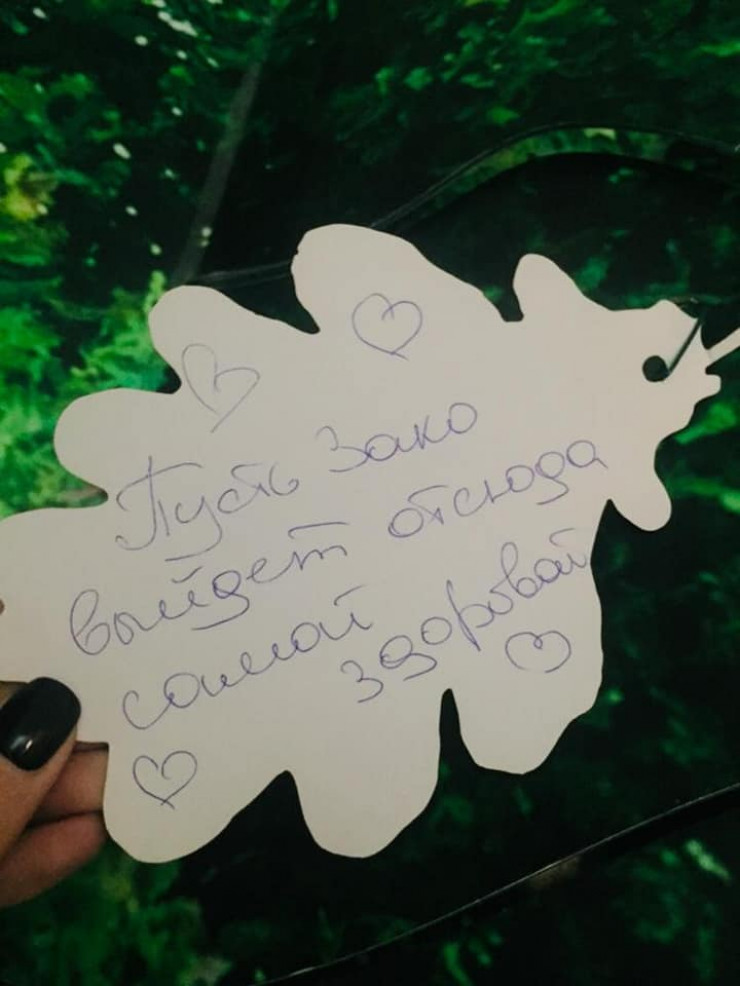 Пусть Зако
выйдет отсюда
самой
здоровой